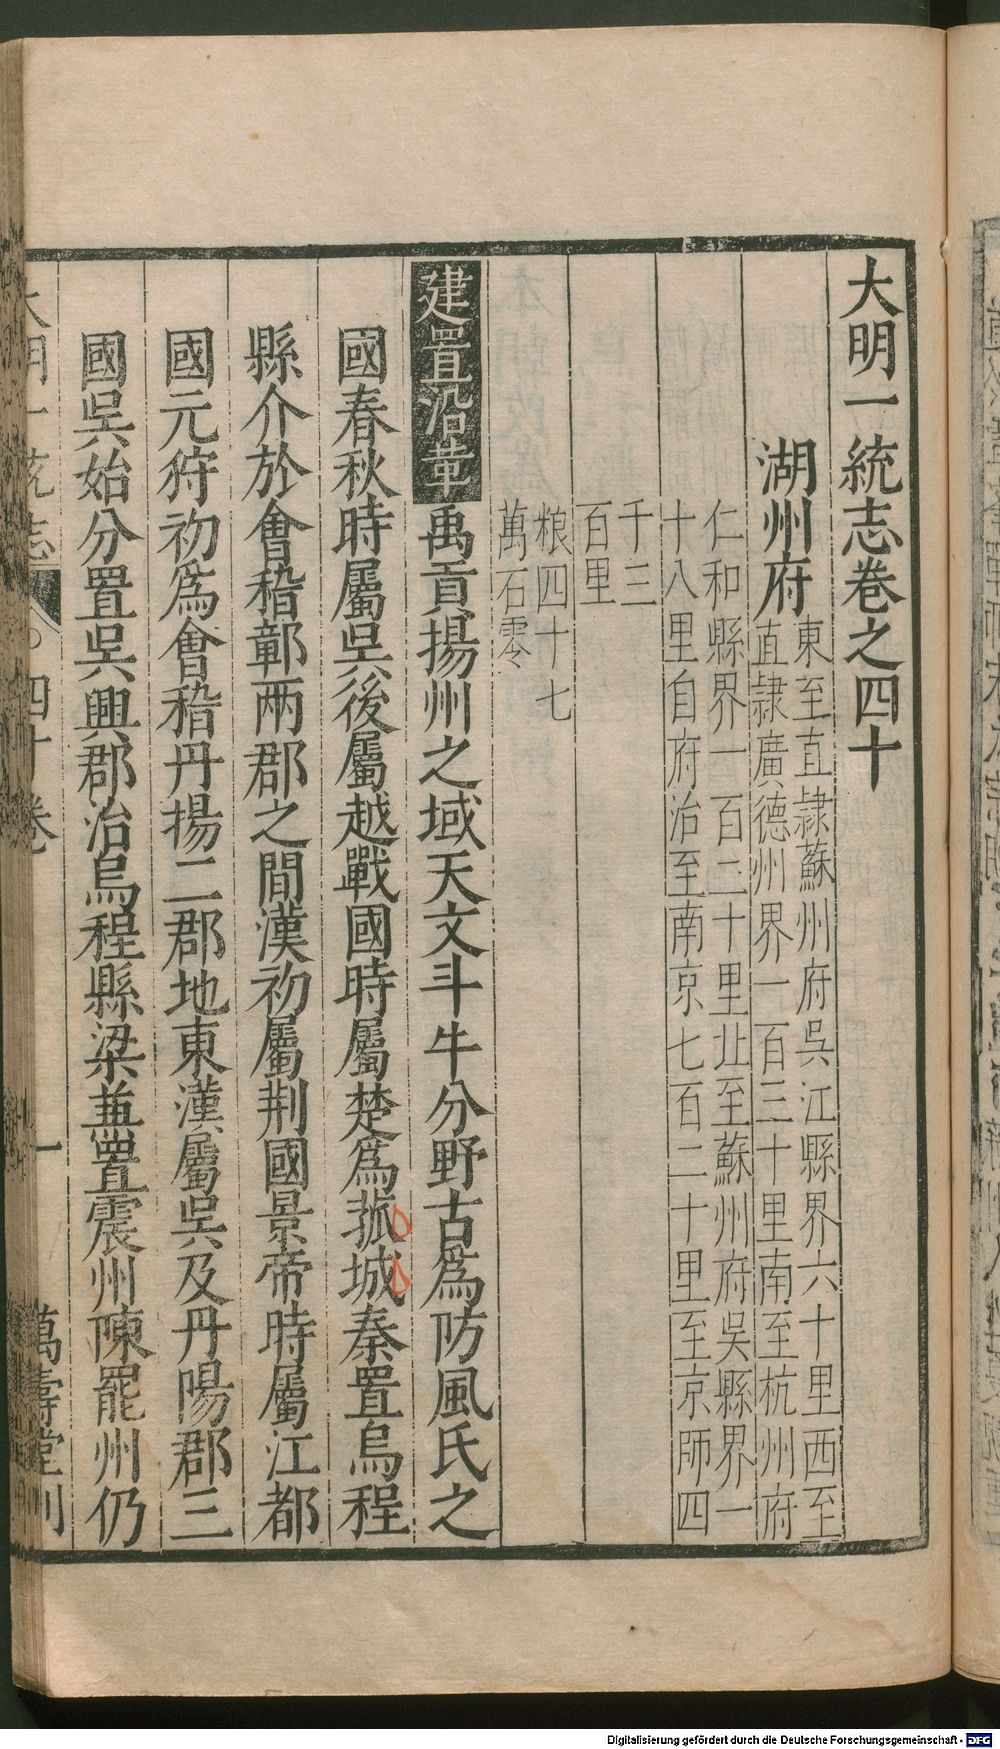 大明一統志卷之四十
湖州府
東至直隷蘇州府吳江縣界六十里西至
直隷廣德州界一百三十里南至杭州府
仁和縣界一百二十里北至蘇州府吳縣界一
十八里自府治至南京七百二十里至京師四
千三
百里
粮四十七
萬石零
建置沿革禹貢揚州之域天文斗牛分野古爲防風氏之
國春秋時屬吳後屬越戰國時屬楚爲菰城秦置烏程
縣介於會稽鄣兩郡之間漢初屬荆國景帝時屬江都
國元狩初爲會稽丹揚二郡地東漢屬吳及丹陽郡三
國吳始分置吳興郡治烏程縣梁兼置震州陳罷州仍
大明一統志 四十卷 一 萬壽堂刊
Digitalisierung gefördert durch die Deutsche Forschungsgemeinschaft - DFG